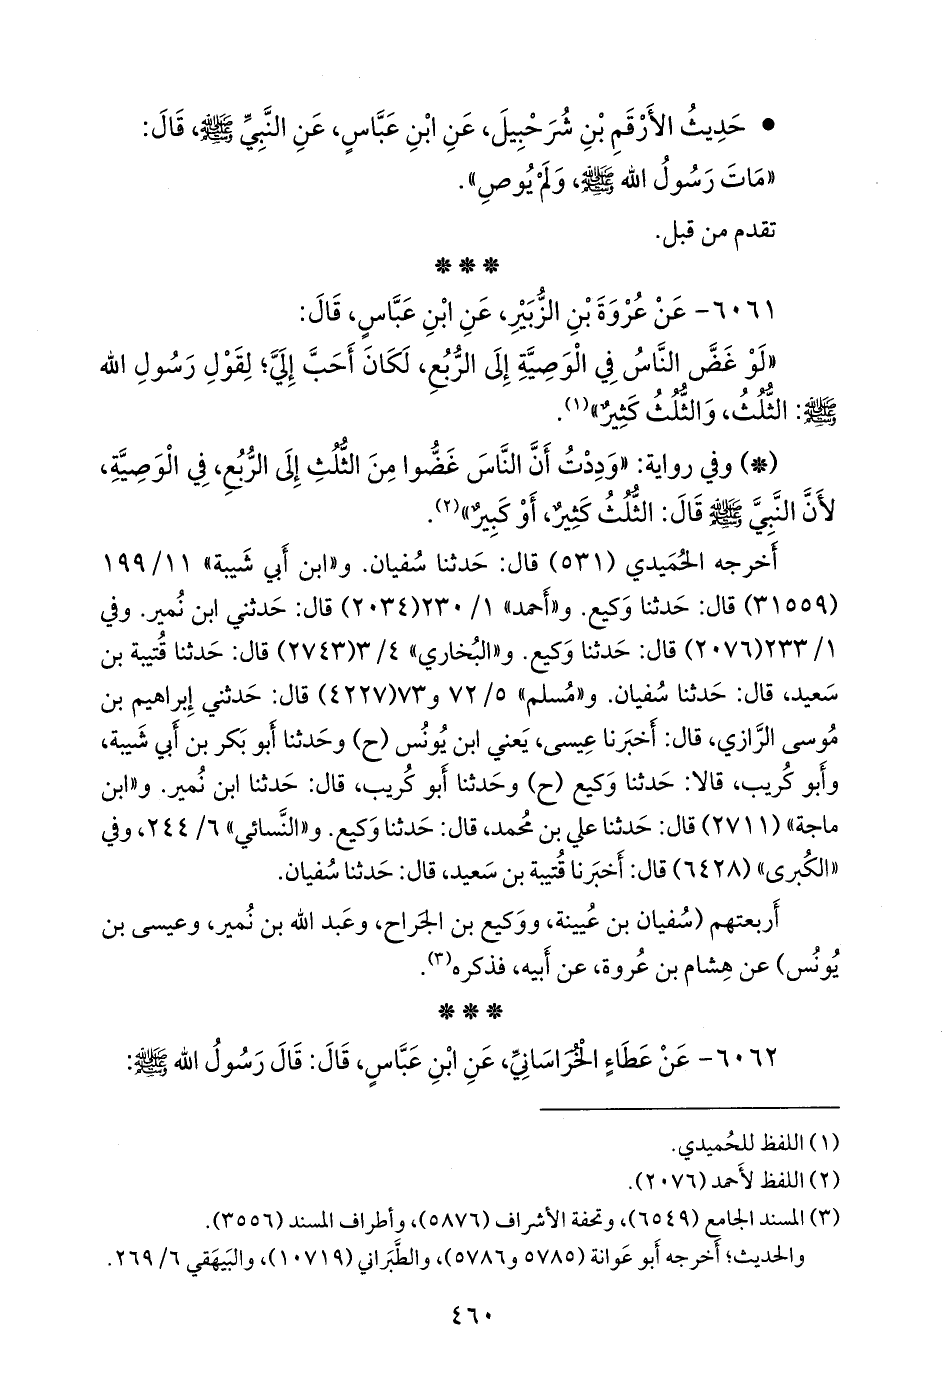 • حَدِيثُ الأَرْقَمِ بْنِ شُرَحْبِيلَ، عَنِ ابْنِ عَبَّاسٍ، عَنِ النَّبِيِّ ﷺ، قَالَ:
«مَاتَ رَسُولُ الله ﷺ، وَلَمْ يُوصِ».
تقدم من قبل.
* * *
٦٠٦١- عَنْ عُرْوَةَ بْنِ الزُّبَيْرِ، عَنِ ابْنِ عَبَّاسٍ، قَالَ:
«لَوْ غَضَّ النَّاسُ فِي الْوَصِيَّةِ إِلَى الرُّبُعِ، لَكَانَ أَحَبَّ إِلَيَّ؛ لِقَوْلِ رَسُولِ الله
ﷺ: الثُّلُثُ، وَالثُّلُثُ كَثِيرٌ»(١).
(*) وفي رواية: «وَدِدْتُ أَنَّ النَّاسَ غَضُّوا مِنَ الثُّلُثِ إِلَى الرُّبُعِ، فِي الْوَصِيَّةِ،
لأَنَّ النَّبِيَّ ﷺ قَالَ: الثُّلُثُ كَثِيرٌ، أَوْ كَبِيرٌ»(٢).
أَخرجه الحُمَيدي (٥٣١) قال: حَدثنا سُفيان. و«ابن أَبي شَيبة» ١١/ ١٩٩
(٣١٥٥٩) قال: حَدثنا وَكيع. و«أَحمد» ١/ ٢٣٠(٢٠٣٤) قال: حَدثني ابن نُمير. وفي
١/ ٢٣٣(٢٠٧٦) قال: حَدثنا وَكيع. و«البُخاري» ٤/ ٣(٢٧٤٣) قال: حَدثنا قُتيبة بن
سَعيد، قال: حَدثنا سُفيان. و«مُسلم» ٥/ ٧٢ و٧٣(٤٢٢٧) قال: حَدثني إِبراهيم بن
مُوسى الرَّازي، قال: أَخبَرنا عِيسى، يَعني ابن يُونُس (ح) وحَدثنا أَبو بَكر بن أَبي شَيبة،
وأَبو كُريب، قالا: حَدثنا وَكيع (ح) وحَدثنا أَبو كُريب، قال: حَدثنا ابن نُمير. و«ابن
ماجة» (٢٧١١) قال: حَدثنا علي بن مُحمد، قال: حَدثنا وَكيع. و«النَّسائي» ٦/ ٢٤٤، وفي
«الكُبرى» (٦٤٢٨) قال: أَخبَرنا قُتيبة بن سَعيد، قال: حَدثنا سُفيان.
أَربعتهم (سُفيان بن عُيينة، ووَكيع بن الجَراح، وعَبد الله بن نُمير، وعيسى بن
يُونُس) عن هِشام بن عُروة، عن أَبيه، فذكره(٣).
* * *
٦٠٦٢- عَنْ عَطَاءٍ الْخُرَاسَانِيِّ، عَنِ ابْنِ عَبَّاسٍ، قَالَ: قَالَ رَسُولُ الله ﷺ:
(١) اللفظ للحُميدي.
(٢) اللفظ لأَحمد (٢٠٧٦).
(٣) المسند الجامع (٦٥٤٩)، وتحفة الأشراف (٥٨٧٦)، وأطراف المسند (٣٥٥٦).
والحديث؛ أَخرجه أَبو عَوانة (٥٧٨٥ و٥٧٨٦)، والطَّبَراني (١٠٧١٩)، والبَيهَقي ٦/ ٢٦٩.
٤٦٠